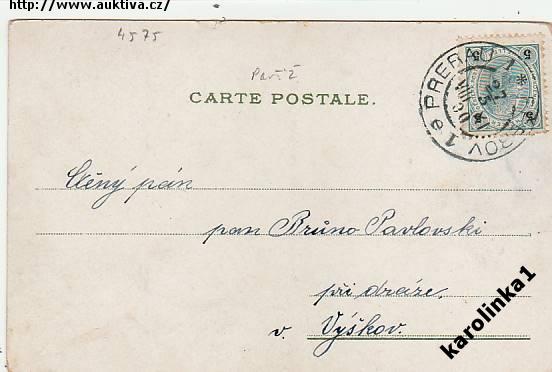 http://www.auktiva.cz/
4575
Paříž
CARTE POSTALE.
PRERAU 1
PŘEROV 1
5 5
5 5
Ctěný pán
pan Brůno Pavlovski
při dráze.
v. Vyškov.
karolinka1